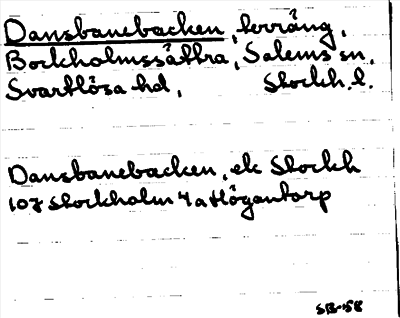 Dansbanebacken, terräng,
Bockholmssättra, Salems sn,
Svartlösa hd, Stockh. l.
Dansbanebacken, ek Stockh
107 Stockholm 4a Högantorp
SB-58